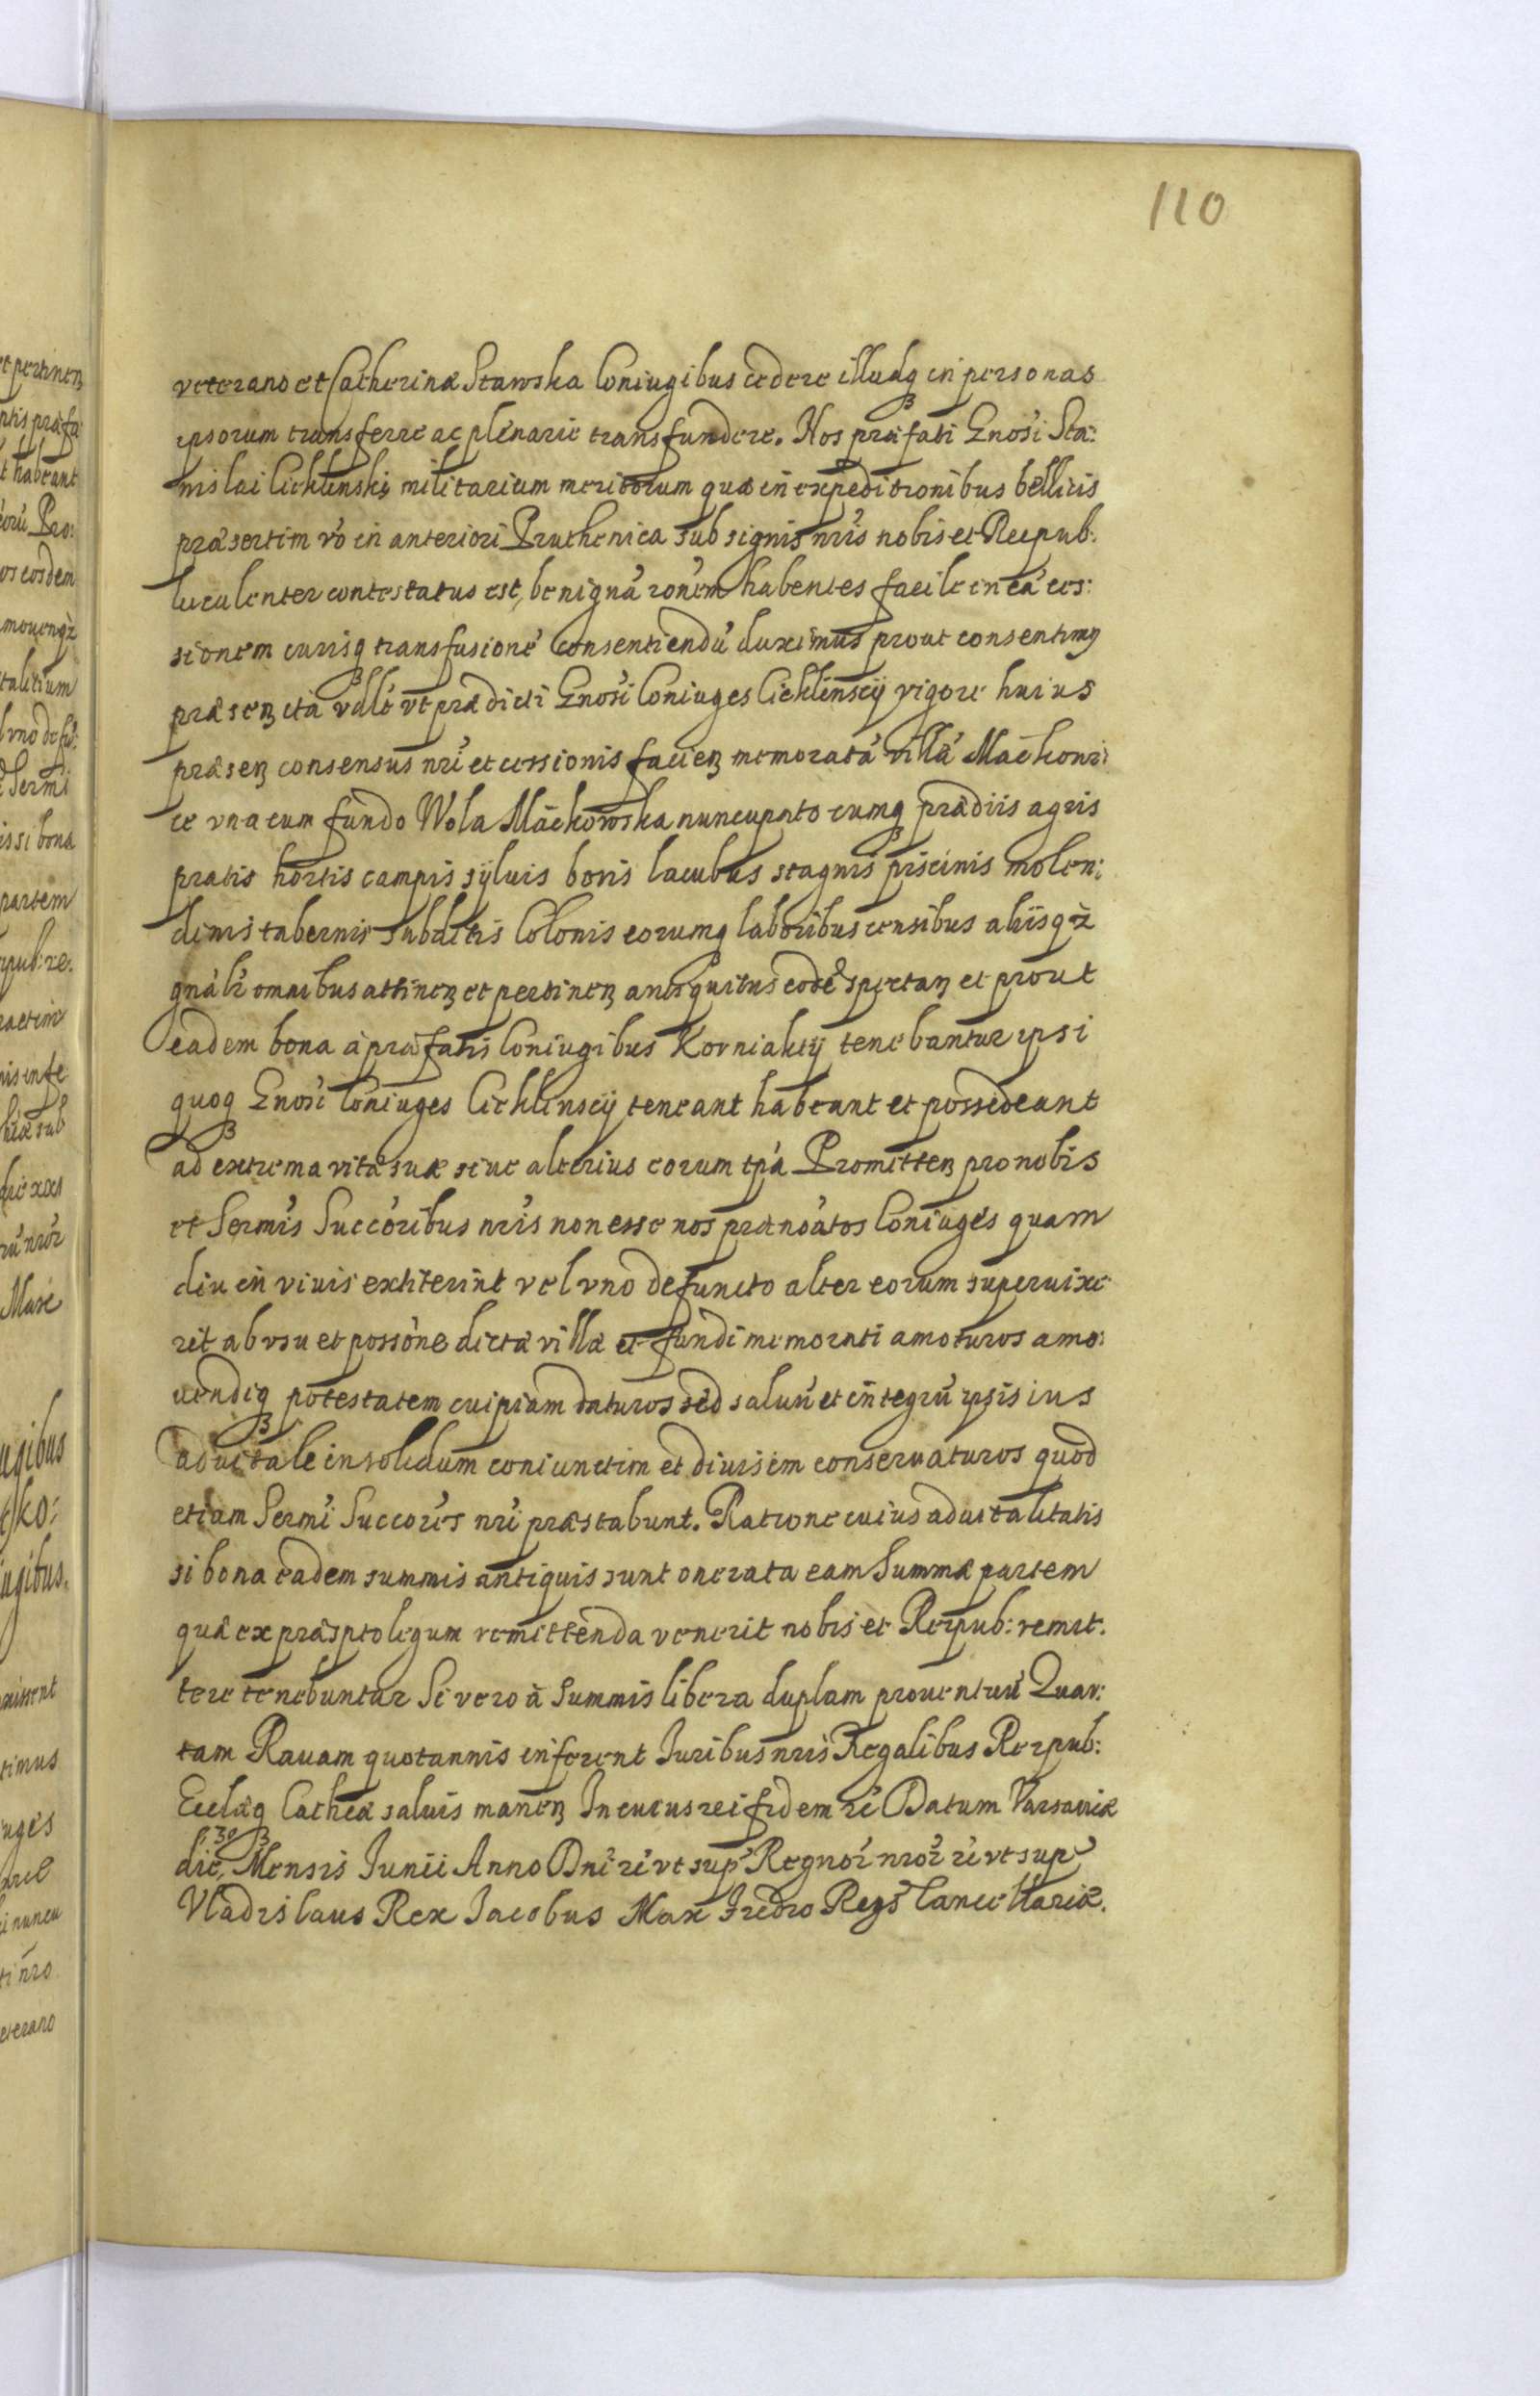 110
veterano et Catherinæ Stawska Coniugibus cedere illudq3 in personas
ipsorum transferre ac plenarie transfundere. Nos præfati Gnosi Sta:
nislai Cieklinski militarium meritorum quæ in expeditionibus bellicis
præsertim vo in anteriori Pruthenica sub signis nris nobis et Reipub:
luculenter contestatus est, benignã ronem habentes facile in eã ces:
sionem iurisq3 transfusionẽ consentiendũ duximus prout consentimq
præsenz ita vdlt vt prædicti Gnosi Coniuges Cieklinscÿ vigore huius
præsenz consensus nri et cessionis facienz memoratã villã Maćkowi:
ce vna cum fundo Wola Maćkowska nuncupato cumq3 prædiis agris
pratis hortis campis sÿluis boris lacubus stagnis piscinis molen:
dinis tabernis subditis Colonis eorumq3 laboribus censibus aliisq3
gnalr omnibus attinenz et pertinenz antiquitus eodẽ spectanz et prout
eadem bona à præfatis Coniugibus Korniakÿ tenebantur ipsi
quoq3 Gnosi Coniuges Cieklinscÿ teneant habeant et possedeant
ad extrema vitæ suæ siue alterius eorum tpa Promittenz pro nobis
et Sermis Succoribus nris non esse nos prænoatos Coniuges quam
diu in viuis extiterint vel vno defuncto alter eorum superuixe
rit ab vsu et possone dictæ villæ et fundi memorati amoturos amo:
uendiq3 potestatem cuipiam daturos sed saluũ et integrũ ipsis ius
aduitale in solidum coniunctim et diuisim conseruaturos quod
etiam Sermi Succores nri præstabunt. Ratione cuius aduitalitatis
si bona eadem summis antiquis sunt onerata eam Summæ partem
quæ ex præsptolegum remittenda venerit nobis et Reipub: remit:
tere tenebuntur Si vero à summis libera duplam prouentuũ Quar:
tam Rauam quotannis inferent Iuribus nris Regalibus Reipub:
Eclæq3 Cathcæ saluis manenz In cuius rei fidem rẽ Datum Varsauiæ
die, 30 Mensis Iunii Anno Dni rẽ vt sup Regnor nror rẽ vt sup
Vladislaus Rex Iacobus Max Fredro Regs Cancellariæ.